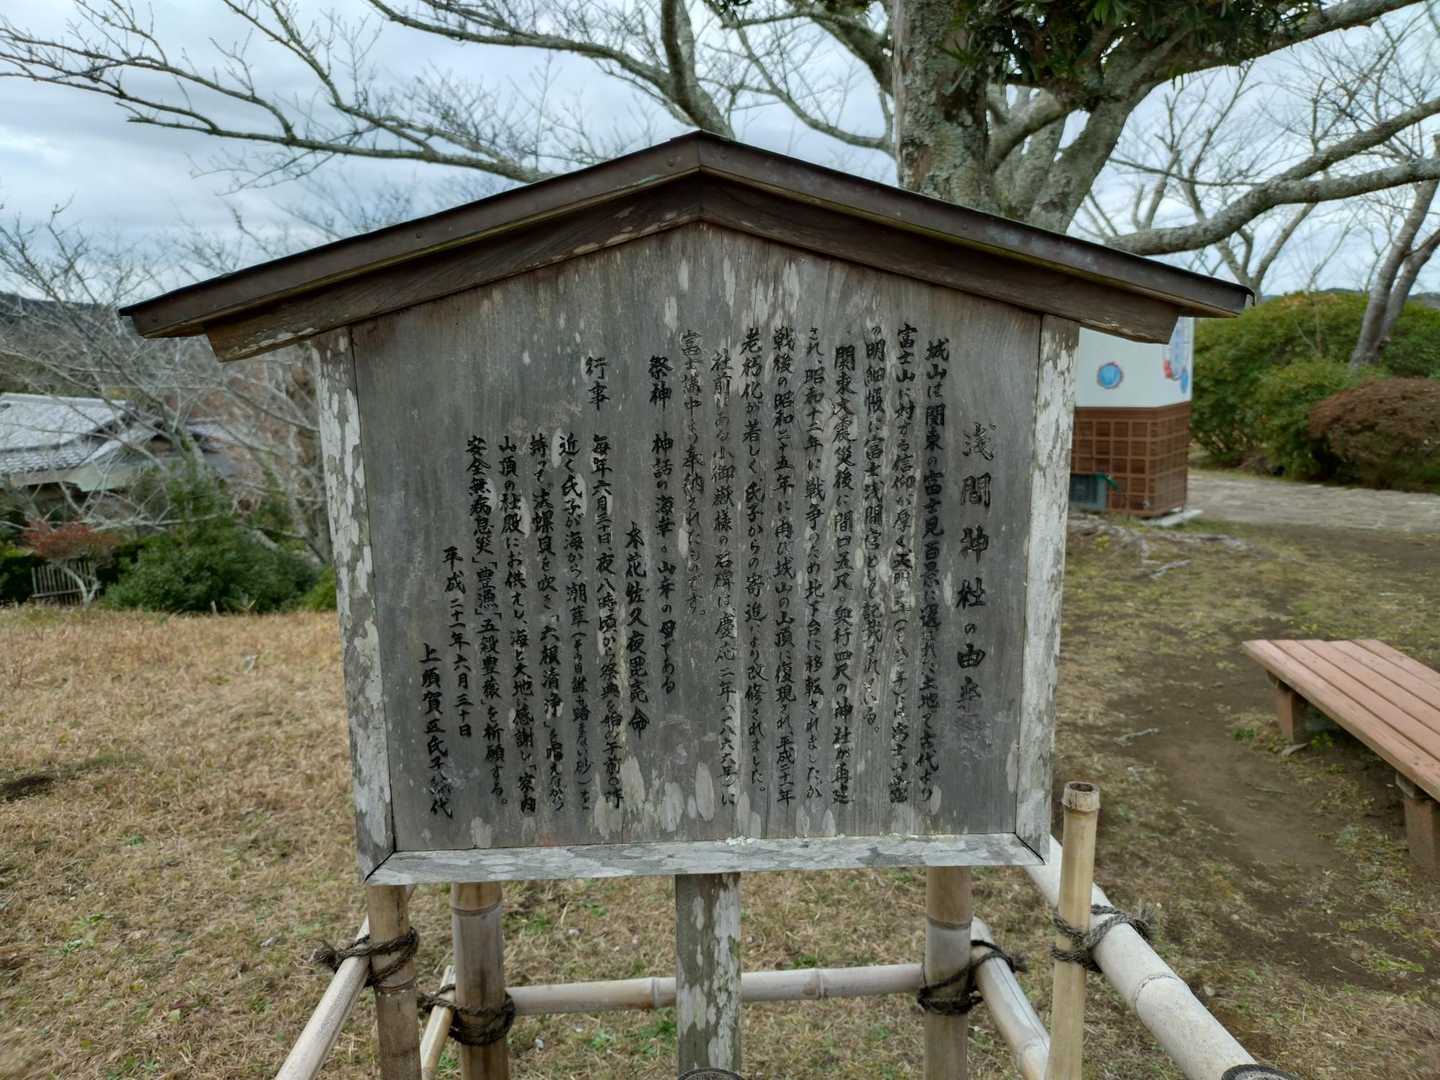 浅間神社の由来
城山は関東の富士見百景に選ばれた土地で古代より
富士山に対する信仰が厚く天明三年
の明細帳に富士浅間宮として記載されている。
関東大震災後に間口五尺。奥行四尺の神社が再建
され、昭和十二年に戦争のため北下台に移転されましたが
戦後の昭和二十五年に再び城山の山頂に復現され、平成二十一年
老朽化が著しく、氏子からの寄進により改修されました。
社前にある小御嶽様の石碑は、慶応二年（一八六六年）に
富士講中より奉納されたものです。
祭神 神話の海幸。山幸の母である
木花佐久夜毘売命
行事 毎年六月三十日夜八時頃から祭典を
近く氏子が海から潮草（その日誰も踏まない砂）を
持って、法螺貝を吹き「六根清浄」を唱えながら
山頂の社殿にお供えし、海と大地に感謝し「家内
安全無病息災」「豊漁」「五穀豊穣」を祈願する。
平成二十一年六月三十日
上須賀区氏子総代